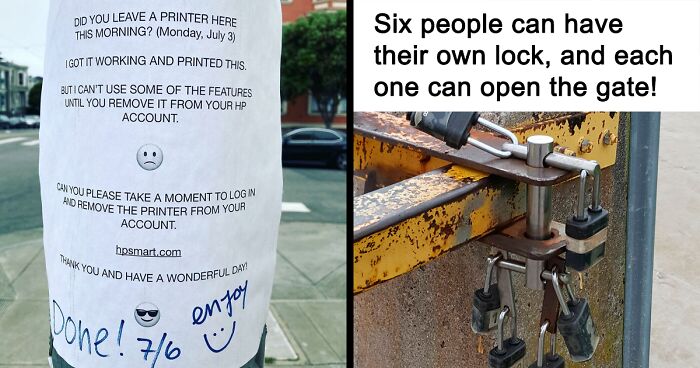 DID YOU LEAVE A PRINTER HERE
THIS MORNING? (Monday, July 3)
I GOT IT WORKING AND PRINTED THIS.
BUT I CAN'T USE SOME OF THE FEATURES
UNTIL YOU REMOVE IT FROM YOUR HP
ACCOUNT.
CAN YOU PLEASE TAKE A MOMENT TO LOG IN
AND REMOVE THE PRINTER FROM YOUR
ACCOUNT.
hpsmart.com
THANK YOU AND HAVE A WONDERFUL DAY!
Done! 7/6
enjoy
Six people can have
their own lock, and each
one can open the gate!